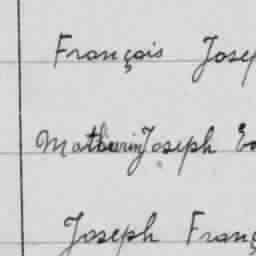 François Josep
Mathurin Joseph
Joseph Franç